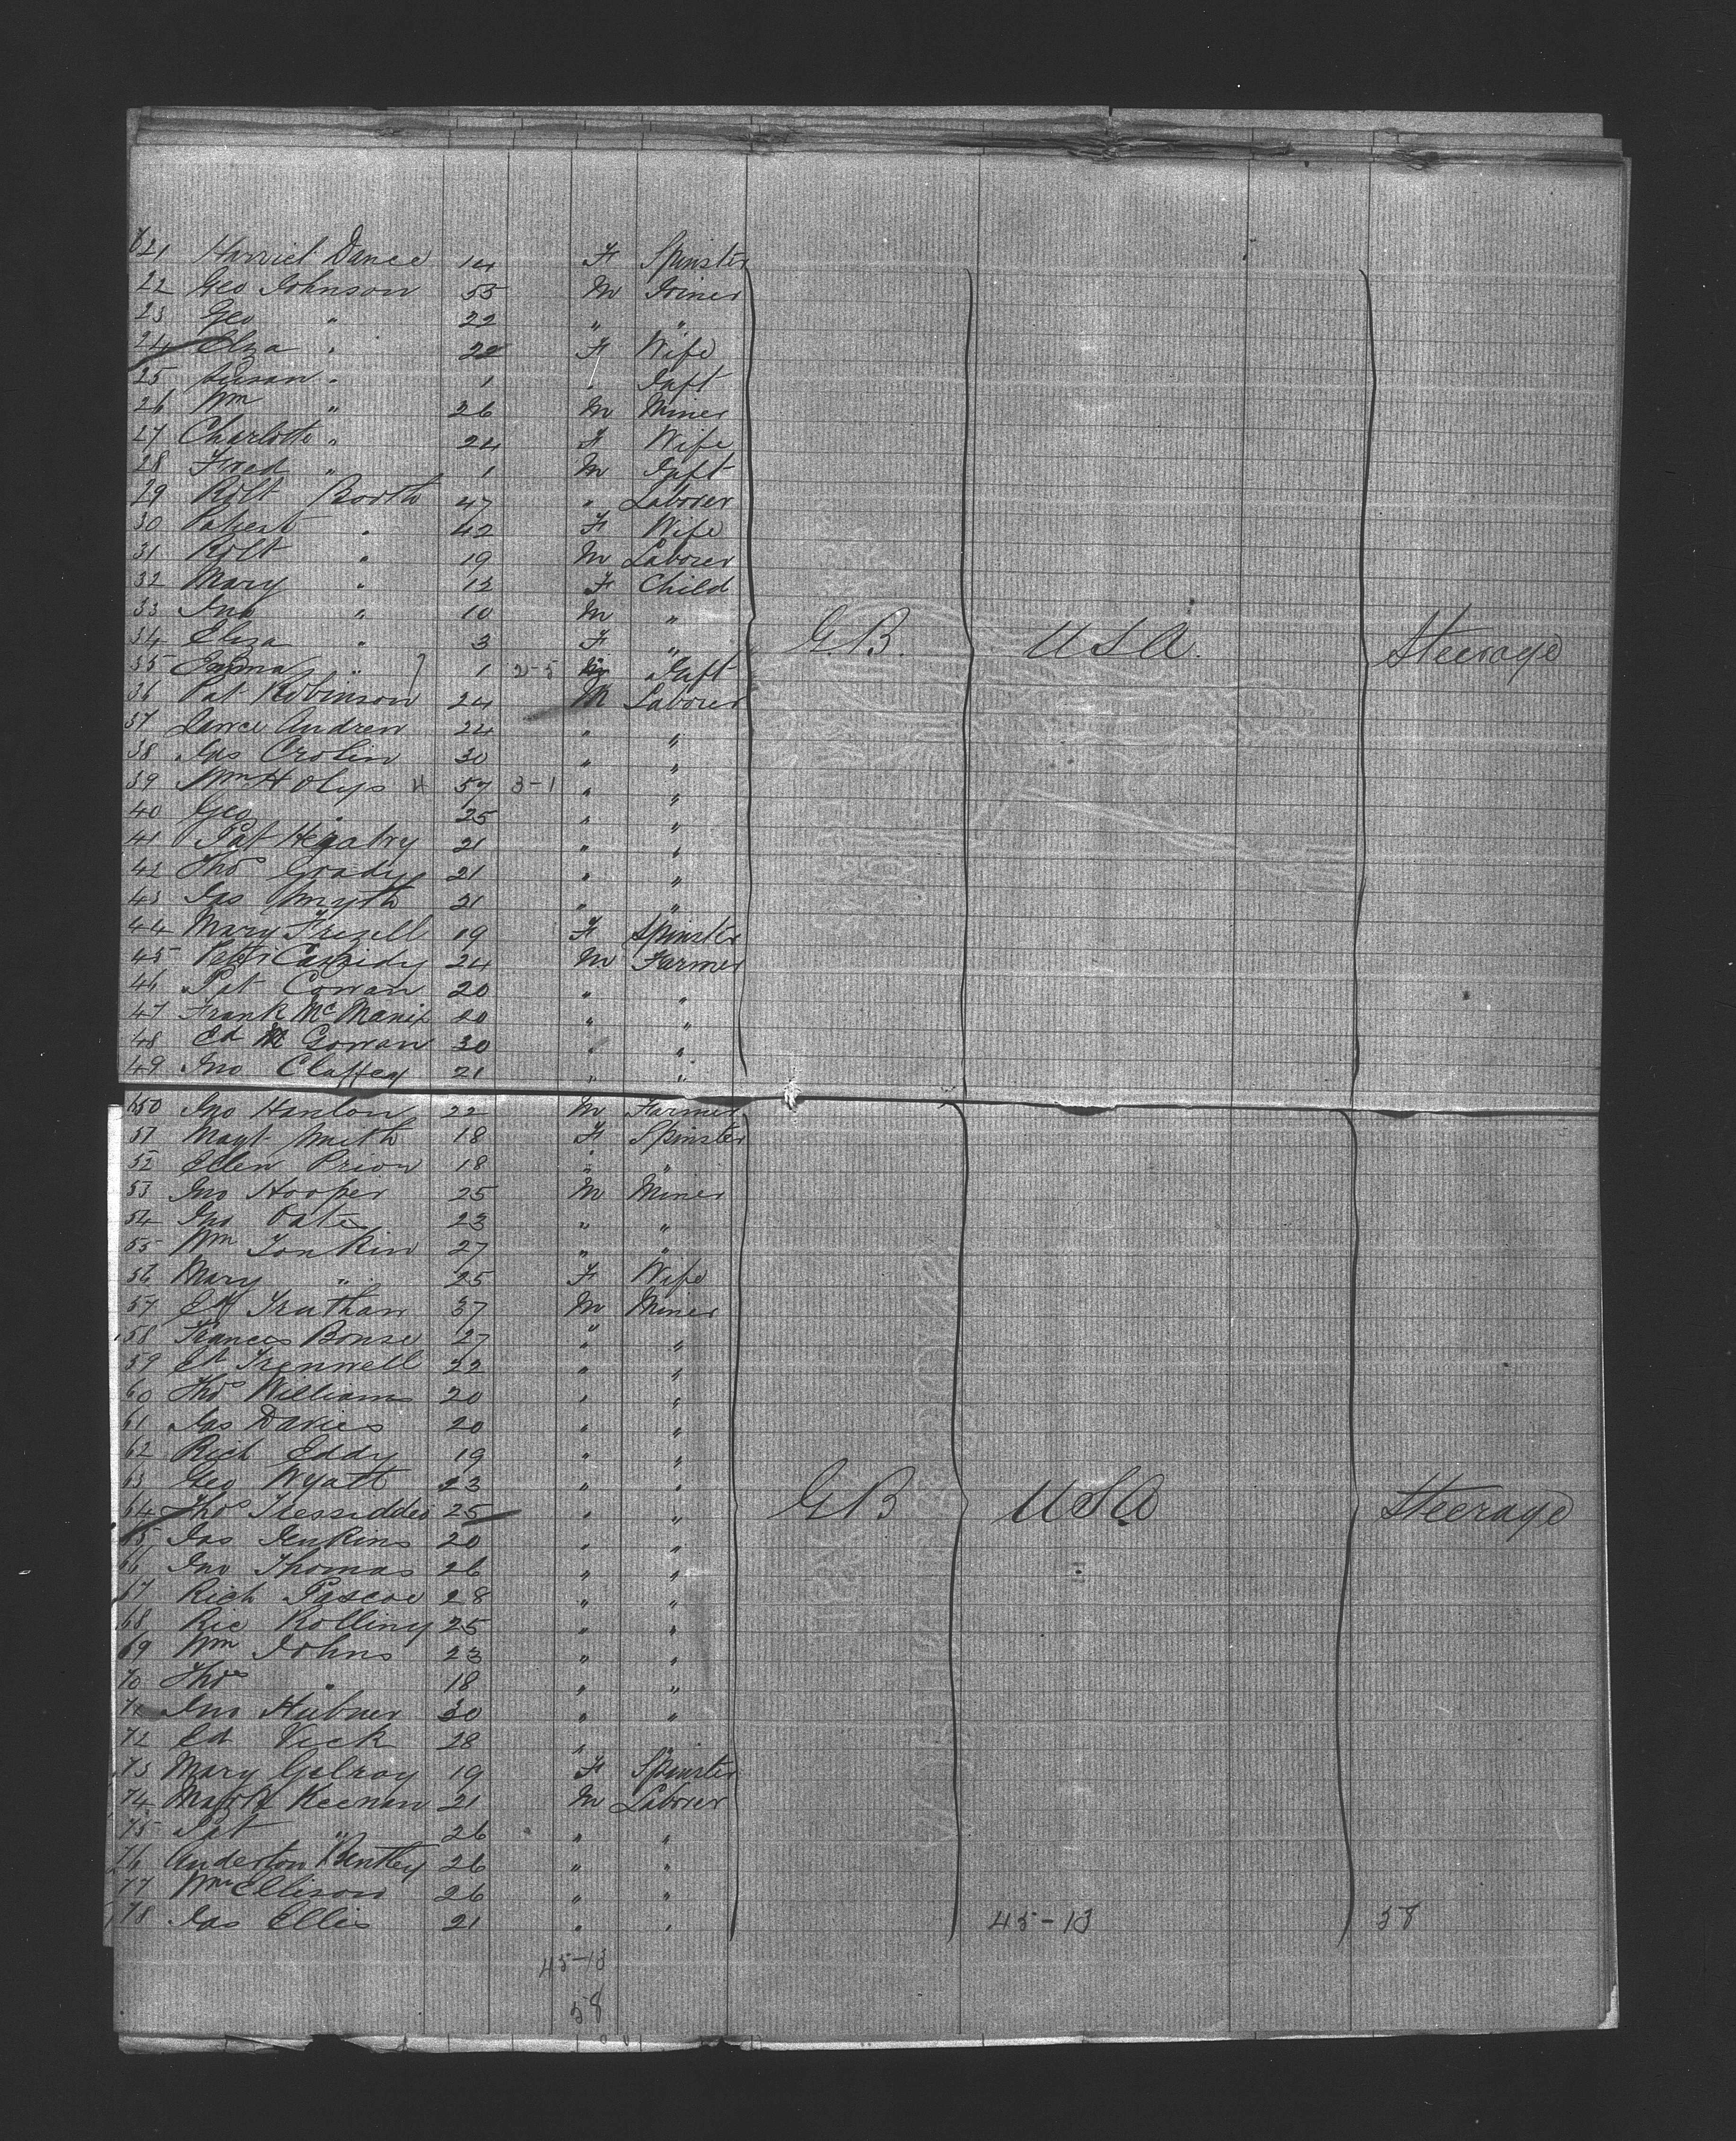 621 Harriet Dance 14 F Spinster
22 Geo Johnson 55 M Joiner
23 Geo " 22 " "
24 Elza " 22 F Wife
25 Susan " 1 " Inft
26 Wm " 26 M Miner
27 Charlotte " 24 F Wife
28 Fred " 1 M Inft
29 Robt Booth 47 " Laborer
30 Patient " 42 F Wife
31 Robt " 19 M Laborer
32 Mary " 12 F Child
33 Jno " 10 M "
34 Eliza " 3 F "
G.B. USA. Steerage
35 Emma " 1 2-5 Inft
36 Pat Robinson 24 M Laborer
37 Lance Andrew 24 " "
38 Jas Crolin 30 " "
39 Wm H Olys 57 3-1 " "
40 Geo " 25 " "
41 Pat Hegatry 21 " "
42 Thos Grady 21 " "
43 Jas Smyth 21 " "
44 Mary Frizell 19 F Spinster
45 Cassidy 24 M Farmer
46 Pat Cowan 20 " "
47 Frank McManix 20 " "
48 Ed Mc Gowan 30 " "
49 Jno Claffey 21 " "
650 Jno Hanlon 22 M Farmer
51 Magt Smith 18 F Spinster
52 Ellen Prior 18 " "
53 Jno Hooper 25 M Miner
54 Jno Oates 23 " "
55 Wm Tonkin 27 " "
56 Mary " 25 F Wife
57 Ed Trathan 37 M Miner
58 Frances Bonse 27 " "
59 Ed Trenwell 22 " "
60 Thos Williams 20 " "
61 Jas Davies 20 " "
62 Rich Eddy 19 " "
63 Geo Wyatt 23 " "
GB USA Steerage
64 Thos Tressidder 25 " "
65 Jas Jenkins 20 " "
66 Jno Thomas 26 " "
67 Rich Pascoe 28 " "
68 Ric Rolling 25 " "
69 Wm Johns 23 " "
70 Thos " 18 " "
71 Jno Hubner 30 " "
72 Ed Vick 28 " "
73 Mary Galroy 19 F Spinster
74 Keenan 21 M Laborer
75 Pat " 26 " "
76 Anderton Bentley 26 " "
77 Wm Ellison 26 " "
78 Jas Ellis 21 " " 45-13 58
45-13
58